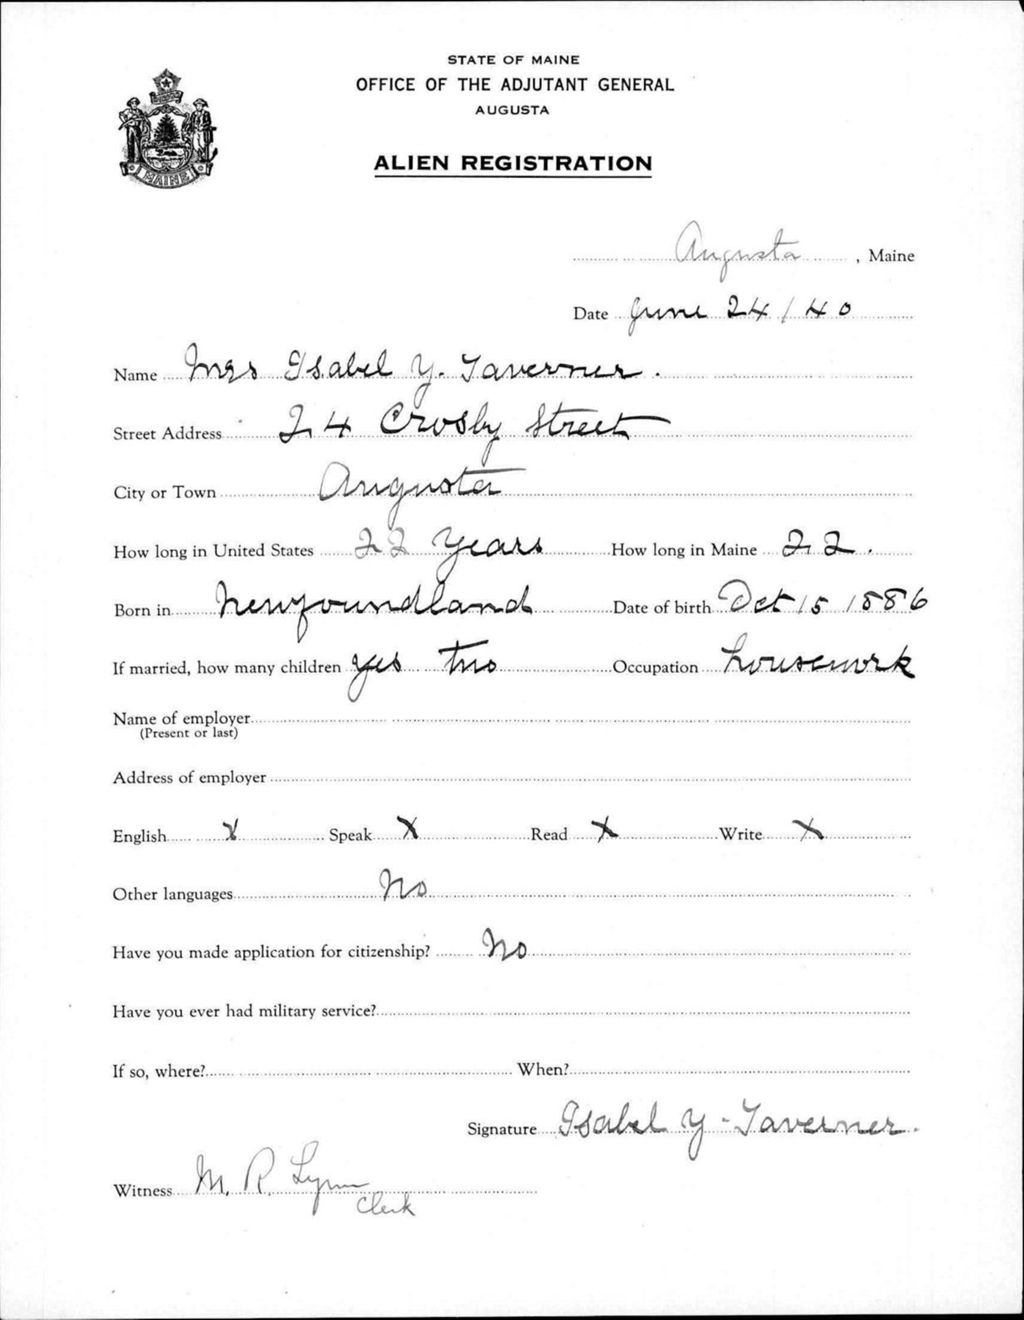 STATE OF MAINE
OFFICE OF THE ADJUTANT GENERAL
AUGUSTA
ALIEN REGISTRATION
MAINE
Augusta, Maine
Date June 24/40
Name Mrs Isabel Y. Taverner.
Street Address 24 Crosby Street
City or Town Augusta
How long in United States 22 Years How long in Maine 22.
Born in Newfoundland Date of birth Oct 15 1886
If married, how many children yes two Occupation housework
Name of employer
(Present or last)
Address of employer
English X Speak X Read X Write X
Other languages No
Have you made application for citizenship? No
Have you ever had military service?
If so, where? When?
Signature Isabel Y-Taverner.
Witness M. R. Lynn
Clerk